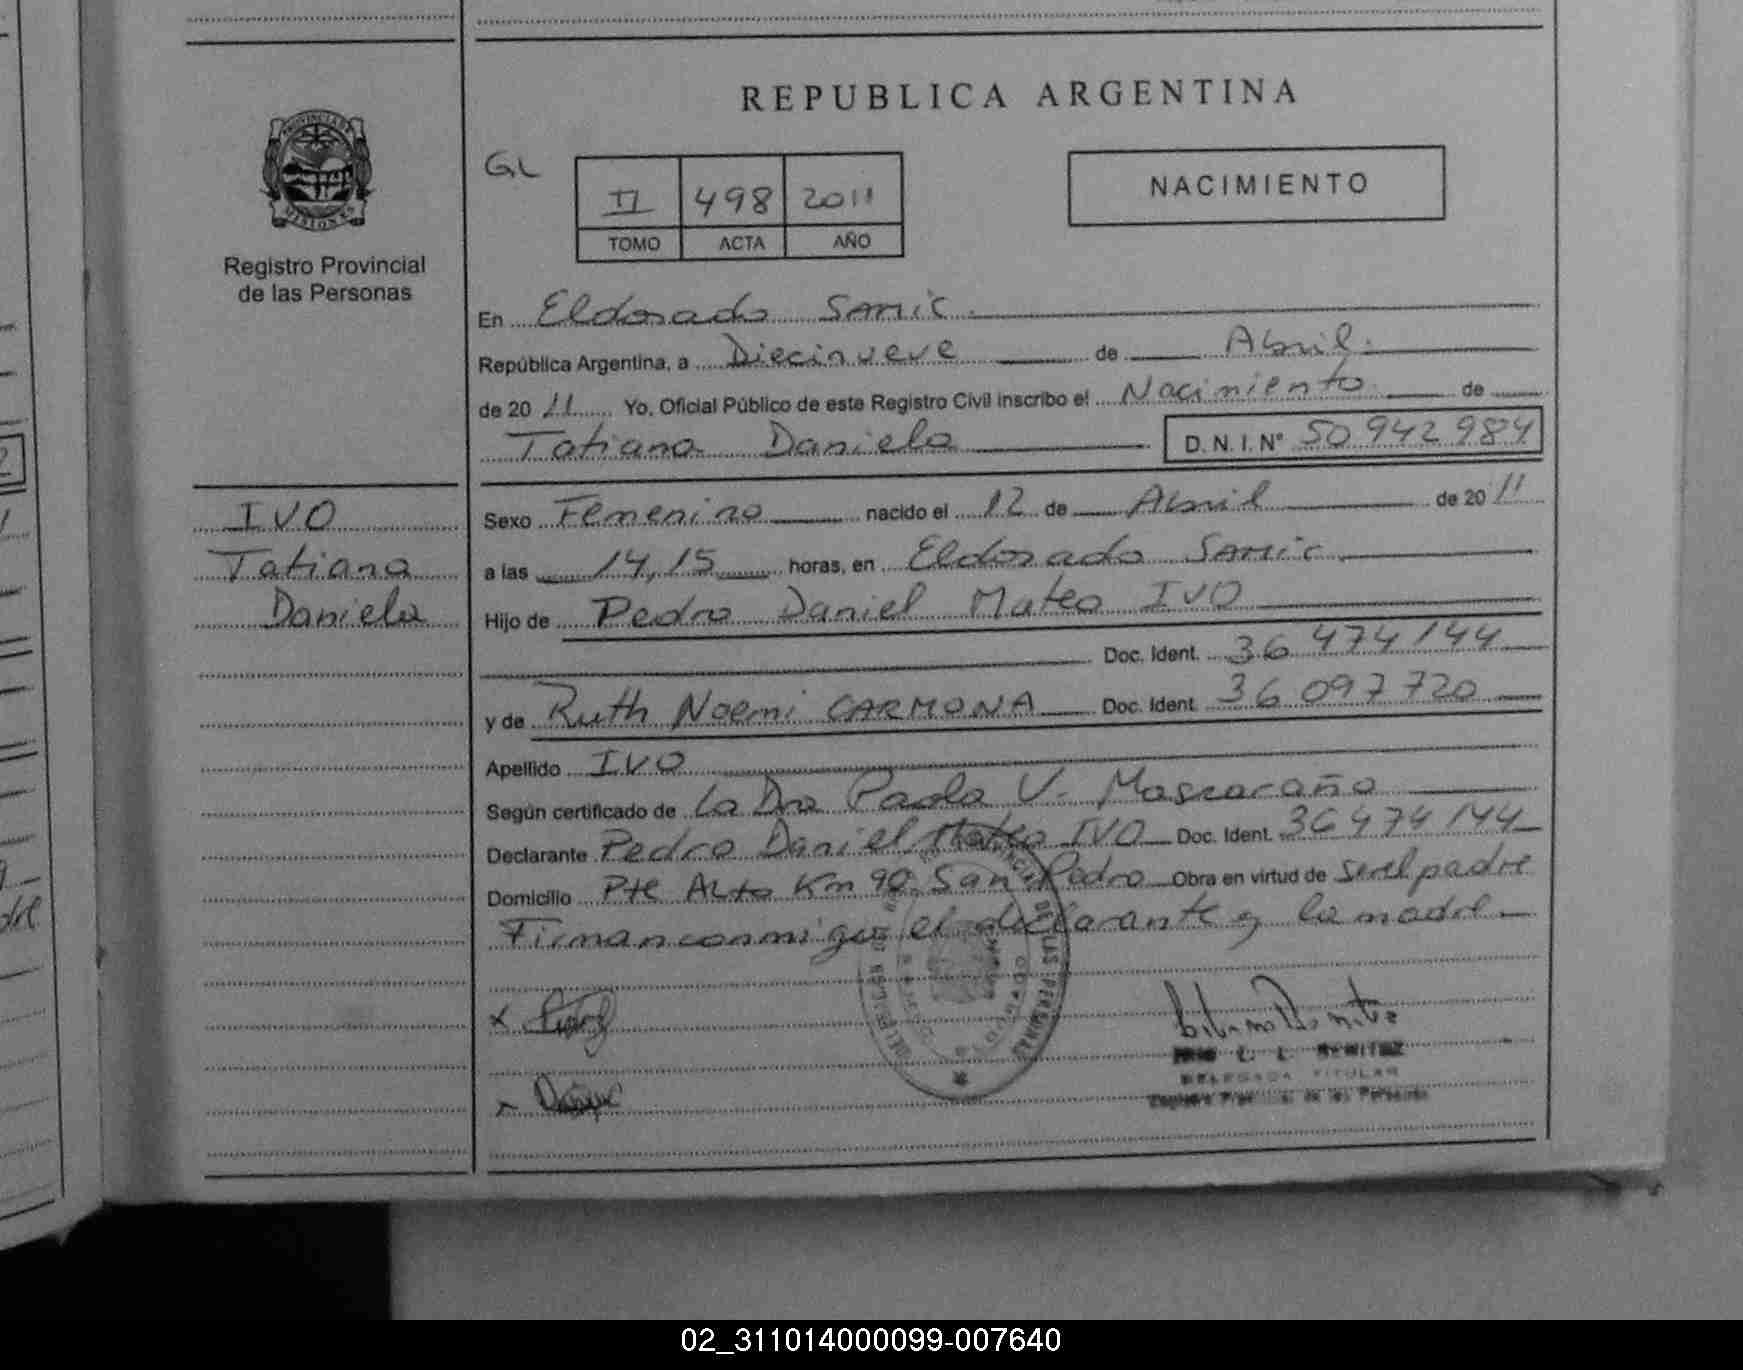 REPUBLICA ARGENTINA
PROVINCIA DE MISIONES
Registro Provincial
de las Personas
GL
II 498 2011
TOMO ACTA AÑO
NACIMIENTO
En Eldorado Samic.
República Argentina, a Diecinueve de Abril.
de 2011 Yo, Oficial Público de este Registro Civil inscribo el Nacimiento de
Tatiana Daniela D.N.I. Nº 50 942 984
IVO
Tatiana
Daniela
Sexo Femenino nacido el 12 de Abril de 2011
a las 14,15 horas, en Eldorado Samic
Hijo de Pedro Daniel Mateo IVO
Doc. Ident. 36 474 144
y de Ruth Noemi CARMONA Doc. Ident. 36 097 720
Apellido IVO
Según certificado de La Dra Paola V. Mascaraño
Declarante Pedro Daniel Mateo IVO Doc. Ident. 36474144
Domicilio Pte Alto Km 90. San Pedro Obra en virtud de ser el padre
Firman conmigo el declarante y la madre
x
x
BENITEZ
DELEGADA TITULAR
Registro Provincial de las Personas
02_311014000099-007640